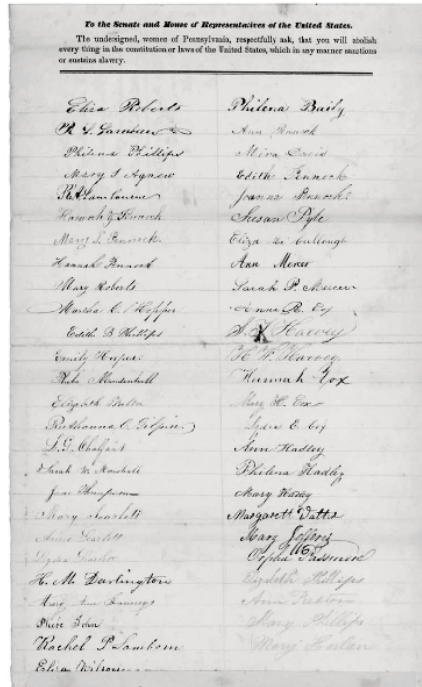 To the Senate and House of Representatives of the United States.
The undersigned, women of Pennsylvania, respectfully ask, that you will abolish
every thing in the constitution or laws of the United States, which in any manner sanctions
or sustains slavery.
Eliza Roberts
Philena Phillips
Mary S Agnew
Hannah Pennock
Mary S. Pennock
Hannah Pennock
Mary Roberts
Martha C. Hopper
Edith B Phillips
Emily
Phebe Mendenhall
Elizabeth
Ruthanna C. Gilpin
Sarah W. Marshall
Jane Thompson
Mary Scarlett
Scarlett
Lydia
H. M. Darlington
Mary Ann
Phebe John
Rachel P Lamborn
Eliza Wilson
Philena Baily
Ann Pennock
Edith Pennock
Joanna Pennock
Susan Pyle
Eliza
Ann Mercer
Sarah P. Mercer
Anna R. Cox
Harvey
H W. Harvey
Hannah Cox
Mary H. Cox
Lydia E. Cox
Ann Hadley
Philena Hadley
Mary
Margarett Watts
Mary Jefferis
116
Orpha Passmore
Elizabeth Phillips
Ann Preston
Mary Phillips
Mary Harlan